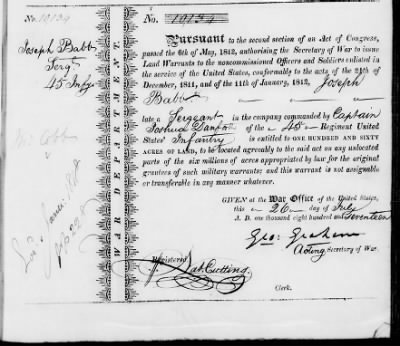 No. 10134
Joseph Babb
Sergt
45 Infy
WAR DEPARTMENT.
No. 10134
Pursuant to the second section of an Act of Congress,
passed the 6th of May, 1812, authorising the Secretary of War to issue
Land Warrants to the noncommissioned Officers and Soldiers enlisted
in the service of the United States, conformably to the acts of the
December, 1811, and of the 11th of January, 1812, Joseph
Babb
late a Sergeant in the company commanded by Captain
Joshua Danforth of the 45th Regiment United
States' Infantry is entitled to ONE HUNDRED AND SIXTY
ACRES OF LAND, to be located agreeably to the said act on any unlocated
parts of the six millions of acres appropriated by law for the original
grantees of such military warrants; and this warrant is not assignable
or transferable in any manner whatever.
GIVEN at the War Office of the United States,
this 26 day of July
A. D. one thousand eight hundred and seventeen
Geo: Graham
Acting Secretary of War.
Registered
Cutting
Clerk.